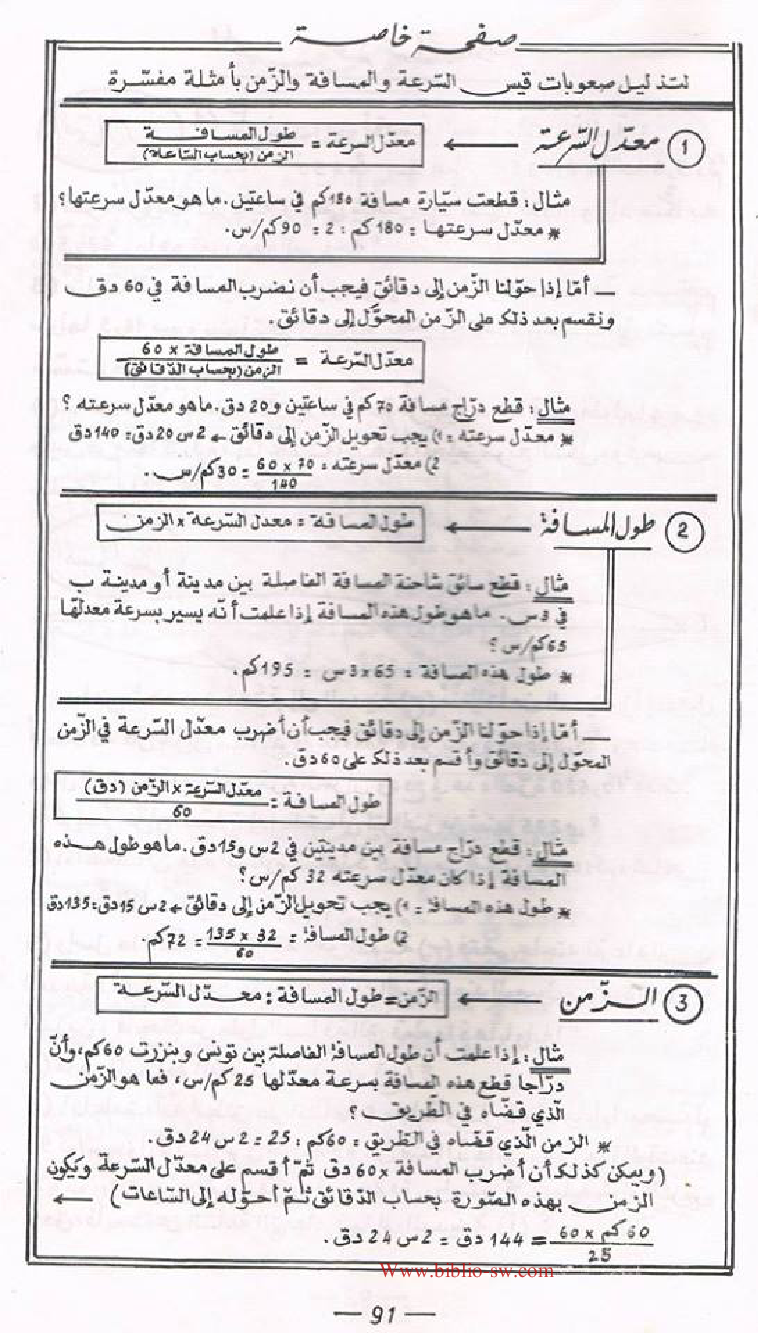 صفحة خاصة
لتذليل صعوبات قيس السّرعة والمسافة والزّمن بأمثلة مفسّرة
1 معدّل السّرعة ← معدّل السرعة = طول المسافة / الزمن (بحساب السّاعة)
مثال: قطعت سيّارة مسافة 180كم في ساعتين. ما هو معدّل سرعتها؟
* معدّل سرعتها = 180كم : 2 = 90كم/س.
— أمّا إذا حوّلنا الزّمن إلى دقائق فيجب أن نضرب المسافة في 60 دق
ونقسم بعد ذلك على الزّمن المحوّل إلى دقائق.
معدّل السّرعة = طول المسافة × 60 / الزمن (بحساب الدّقائق)
مثال: قطع درّاج مسافة 70كم في ساعتين و20 دق. ما هو معدّل سرعته؟
* معدّل سرعته = 1) يجب تحويل الزّمن إلى دقائق ← 2س 20دق = 140دق
2) معدّل سرعته = 70 × 60 / 140 = 30كم/س.
2 طول المسافة ← طول المسافة = معدل السّرعة × الزمن
مثال: قطع سائق شاحنة المسافة الفاصلة بين مدينة أ ومدينة ب
في 3س. ما هو طول هذه المسافة إذا علمت أنّه يسير بسرعة معدلها
65كم/س؟
* طول هذه المسافة = 65×3س = 195كم.
— أمّا إذا حوّلنا الزّمن إلى دقائق فيجب أن أضرب معدّل السّرعة في الزّمن
المحوّل إلى دقائق وأقسم بعد ذلك على 60دق.
طول المسافة = معدّل السّرعة × الزّمن (دق) / 60
مثال: قطع درّاج مسافة بين مدينتين في 2س و15دق. ما هو طول هذه
المسافة إذا كان معدّل سرعته 32 كم/س؟
* طول هذه المسافة = 1) يجب تحويل الزّمن إلى دقائق ← 2س 15دق = 135دق
2) طول المسافة = 32 × 135 / 60 = 72كم.
3 الزّمن ← الزّمن = طول المسافة : معدّل السّرعة
مثال: إذا علمت أن طول المسافة الفاصلة بين تونس وبنزرت 60كم، وأنّ
درّاجا قطع هذه المسافة بسرعة معدلها 25كم/س، فما هو الزّمن
الّذي قضّاه في الطّريق؟
* الزمن الّذي قضّاه في الطريق = 60كم : 25 = 2س 24دق.
(ويمكن كذلك أن أضرب المسافة × 60 دق ثمّ أقسم على معدّل السّرعة ويكون
الزّمن بهذه الصّورة بحساب الدّقائق ثمّ أحوّله إلى السّاعات) ←
60 كم × 60 / 25 = 144 دق = 2س 24 دق.
www.biblio-sw.com
— 91 —